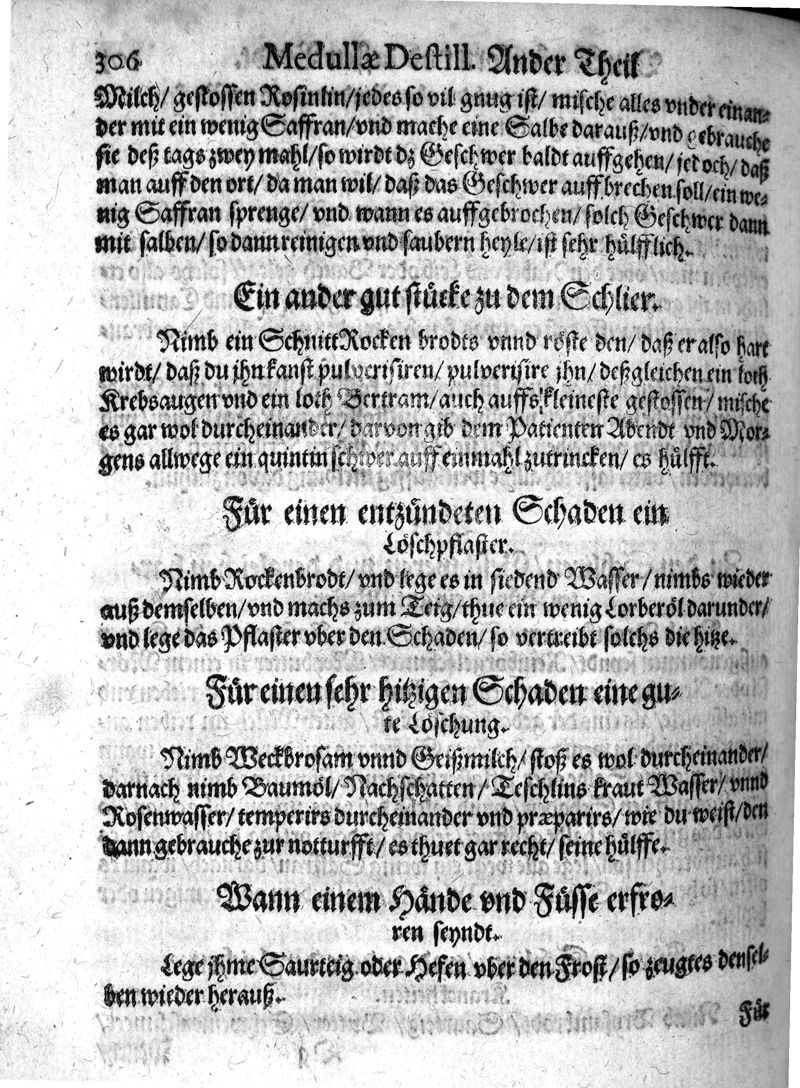 306 Medullæ Destill. Ander Theil
Milch/ gestossen Rosinlin/jedes so vil gnug ist/ mische alles vnder einan-
der mit ein wenig Saffran/vnd mache eine Salbe darauß/vnd gebrauche
sie deß tags zwey mahl/so wirdt dz Geschwer baldt auffgehen/ jedoch/ daß
man auff den ort/ da man wil/ daß das Geschwer auffbrechen soll/ein we-
nig Saffran sprenge/ vnd wann es auffgebrochen/ solch Geschwer dann
mit salben/ so dann reinigen vnd saubern heyle/ist sehr hülfflich.
Ein ander gut stücke zu dem Schlier.
Nimb ein Schnitt Rocken brodts vnnd röste den/ daß er also hart
wirdt/ daß du jhn kanst pulverisiren/ pulverisire jhn/ deßgleichen ein loth
Krebsaugen vnd ein loth Bertram/auch auffs kleineste gestossen/ mische
es gar wol durcheinander/ darvon gib dem Patienten Abendt vnd Mor-
gens allwege ein quintin schwer auff einmahl zutrincken/ es hülfft.
Für einen entzündeten Schaden ein
Löschpflaster.
Nimb Rockenbrodt/ vnd lege es in siedend Wasser/nimbs wieder
auß demselben/vnd machs zum Teig/thue ein wenig Lorberöl darunder/
vnd lege das Pflaster vber den Schaden/ so vertreibt solchs die hitze.
Für einen sehr hitzigen Schaden eine gu-
te Löschung.
Nimb Weckbrosam vnnd Geißmilch/ stoß es wol durcheinander/
darnach nimb Baumöl/ Nachschatten/ Teschlins kraut Wasser/ vnnd
Rosenwasser/ temperirs durcheinander vnd præparirs/ wie du weist/den
dann gebrauche zur notturfft/ es thuet gar recht/ seine hülffe.
Wann einem Hände vnd Füsse erfro-
ren seyndt.
Lege jhme Saurteig oder Hefen vber den Frost/ so zeugtes densel-
ben wieder herauß.
Für